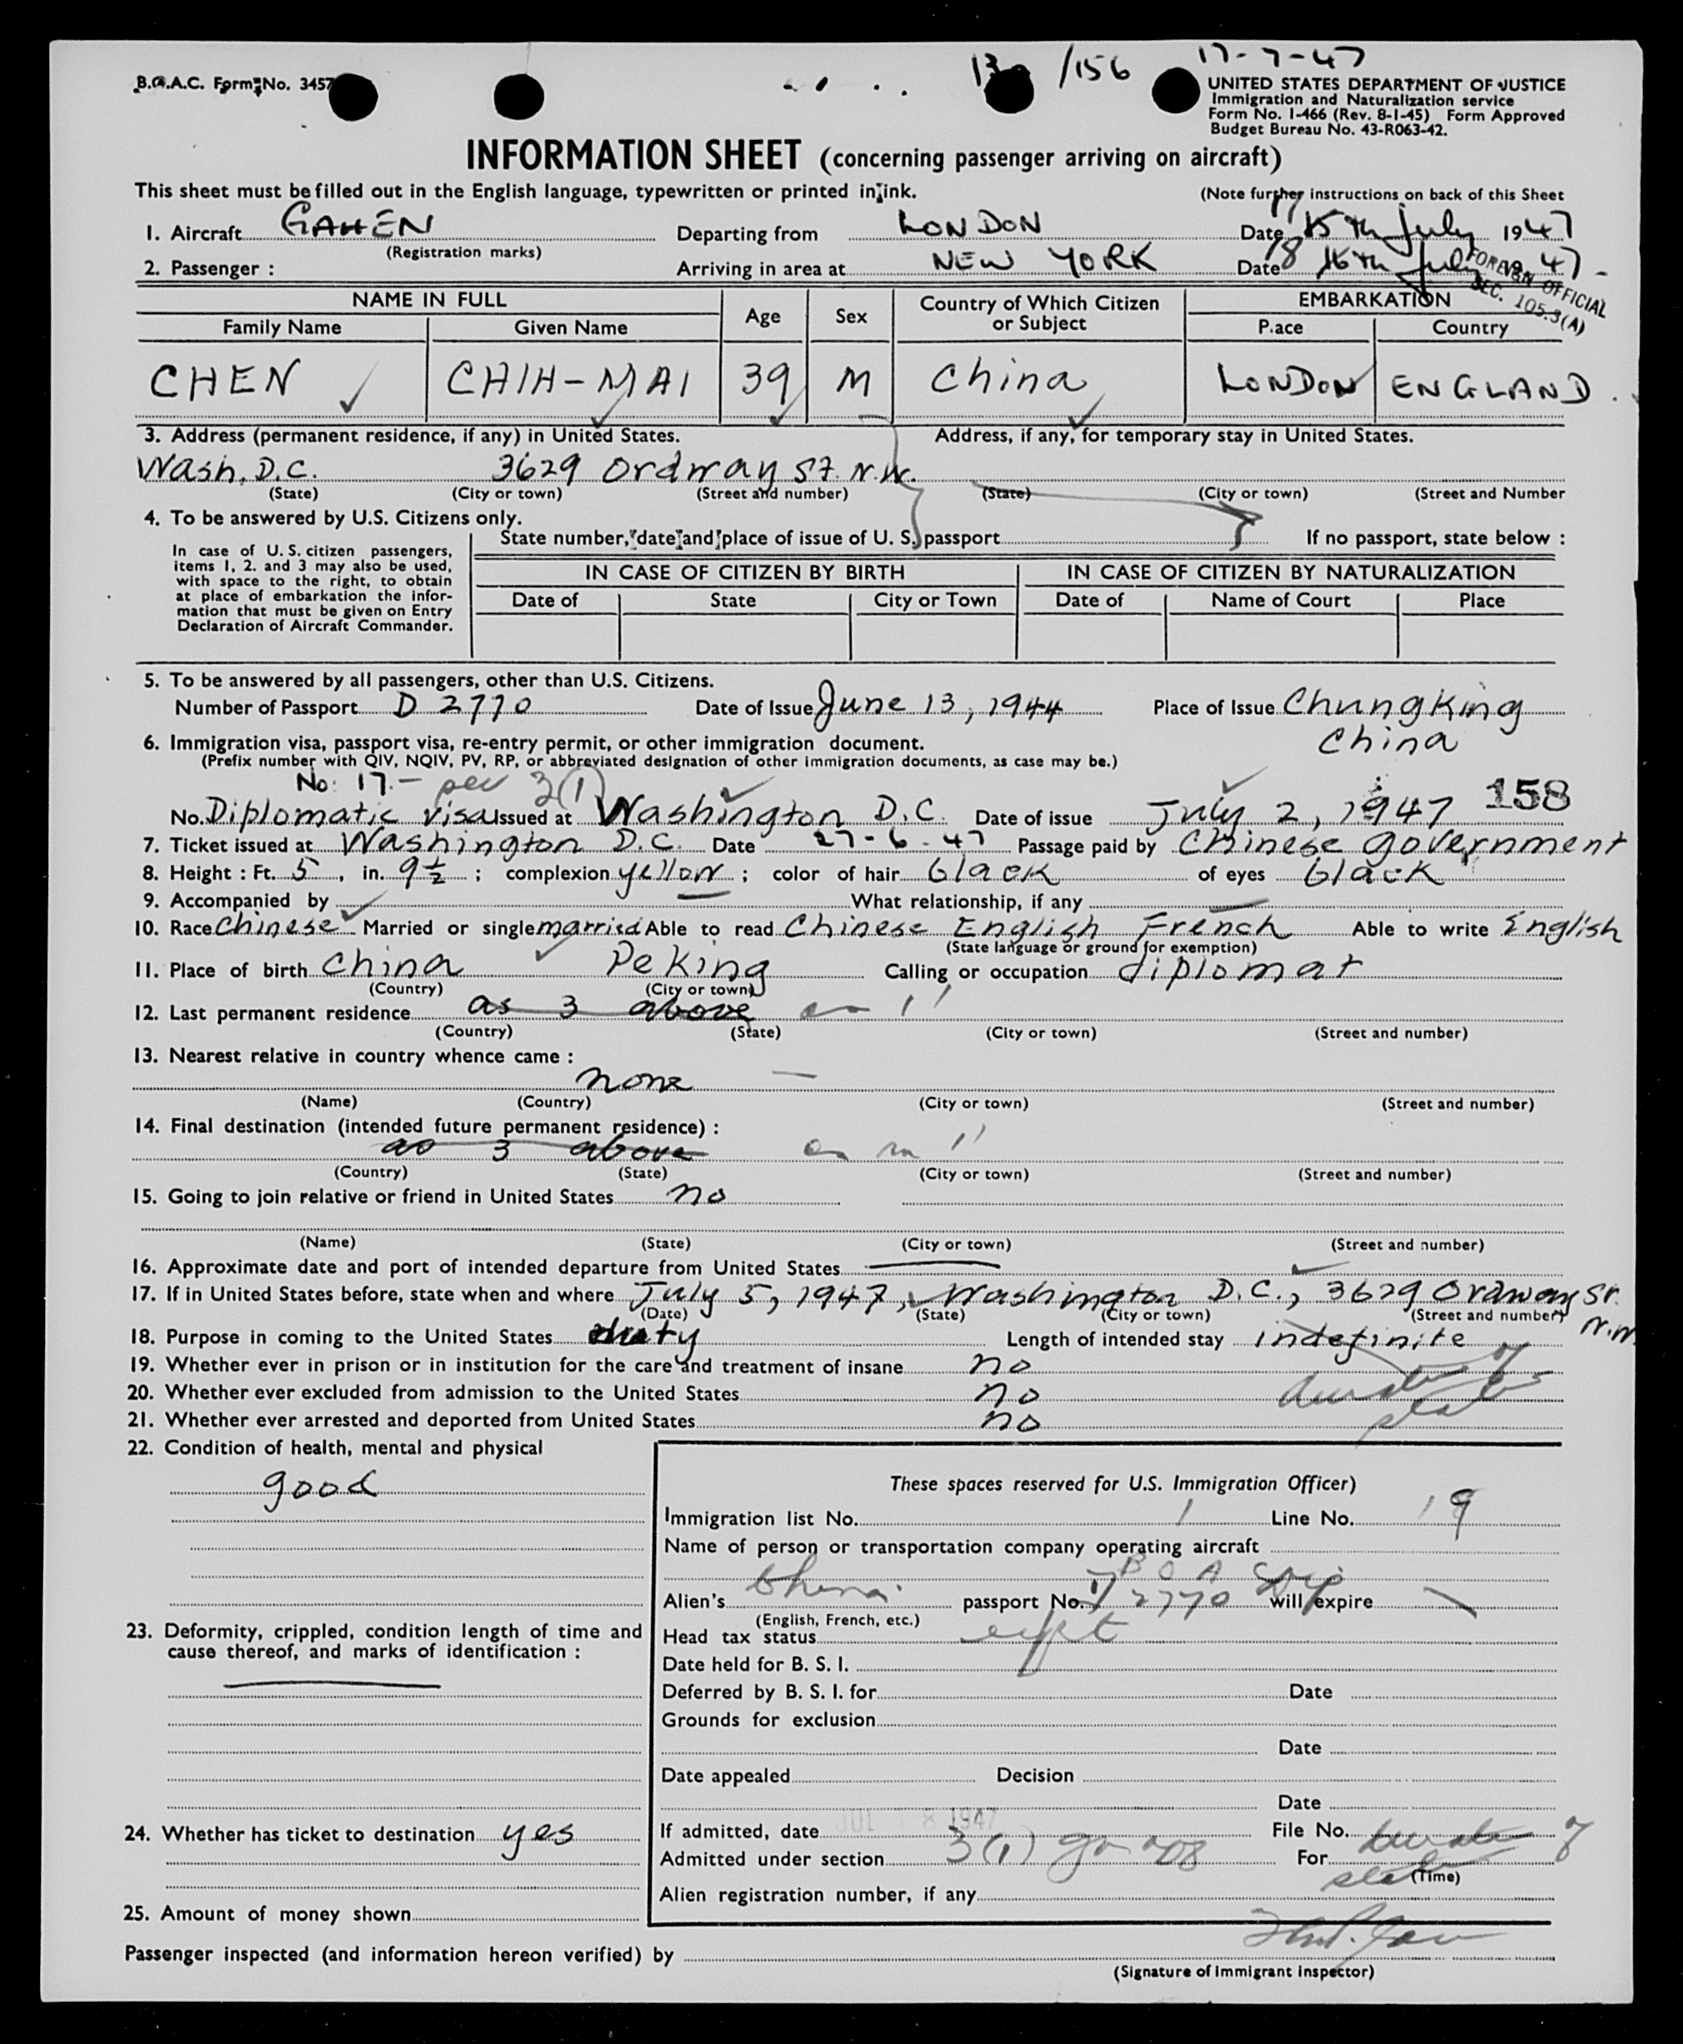 B.O.A.C. Form No. 3457
/156 17-7-47
UNITED STATES DEPARTMENT OF JUSTICE
Immigration and Naturalization service
Form No. I-466 (Rev. 8-1-45) Form Approved
Budget Bureau No. 43-R063-42.
INFORMATION SHEET (concerning passenger arriving on aircraft)
This sheet must be filled out in the English language, typewritten or printed in ink. (Note further instructions on back of this Sheet
1. Aircraft GAHEN Departing from LONDON Date 17 15th July 1947
(Registration marks)
2. Passenger : Arriving in area at NEW YORK Date 18 16th July 1947
FOREIGN OFFICIAL
SEC. 105.3(A)
NAME IN FULL Age Sex Country of Which Citizen or Subject EMBARKATION
Family Name Given Name Place Country
CHEN CHIH-MAI 39 M China LONDON ENGLAND.
3. Address (permanent residence, if any) in United States. Address, if any, for temporary stay in United States.
Wash. D.C. 3629 Ordway St. N.W.
(State) (City or town) (Street and number) (State) (City or town) (Street and Number
4. To be answered by U.S. Citizens only.
State number, date and place of issue of U. S. passport If no passport, state below :
In case of U. S. citizen passengers,
items 1, 2. and 3 may also be used,
with space to the right, to obtain
at place of embarkation the infor-
mation that must be given on Entry
Declaration of Aircraft Commander.
IN CASE OF CITIZEN BY BIRTH IN CASE OF CITIZEN BY NATURALIZATION
Date of State City or Town Date of Name of Court Place
5. To be answered by all passengers, other than U.S. Citizens.
Number of Passport D 2770 Date of Issue June 13, 1944 Place of Issue Chungking
China
6. Immigration visa, passport visa, re-entry permit, or other immigration document.
(Prefix number with QIV, NQIV, PV, RP, or abbreviated designation of other immigration documents, as case may be.)
No. 17.- sec 3(1)
No. Diplomatic visa Issued at Washington D.C. Date of issue July 2, 1947 158
7. Ticket issued at Washington D.C. Date 27-6-47 Passage paid by Chinese Government
8. Height : Ft. 5, in. 9½ ; complexion yellow ; color of hair black of eyes black
9. Accompanied by What relationship, if any
10. Race Chinese Married or single married Able to read Chinese English French Able to write English
(State language or ground for exemption)
11. Place of birth China Peking Calling or occupation diplomat
(Country) (City or town)
12. Last permanent residence as 3 above as 11
(Country) (State) (City or town) (Street and number)
13. Nearest relative in country whence came :
none
(Name) (Country) (City or town) (Street and number)
14. Final destination (intended future permanent residence) :
as 3 above as in 11
(Country) (State) (City or town) (Street and number)
15. Going to join relative or friend in United States no
(Name) (State) (City or town) (Street and number)
16. Approximate date and port of intended departure from United States
17. If in United States before, state when and where July 5, 1947, Washington D.C., 3629 Ordway St.
N.W.
(Date) (State) (City or town) (Street and number)
18. Purpose in coming to the United States duty Length of intended stay indefinite
19. Whether ever in prison or in institution for the care and treatment of insane no
20. Whether ever excluded from admission to the United States no duration of
21. Whether ever arrested and deported from United States no status
22. Condition of health, mental and physical
good
These spaces reserved for U.S. Immigration Officer)
Immigration list No. 1 Line No. 19
Name of person or transportation company operating aircraft
B O A Corp
Alien's China passport No. D 2770 will expire
(English, French, etc.)
23. Deformity, crippled, condition length of time and
cause thereof, and marks of identification :
Head tax status
Date held for B. S. I.
Deferred by B. S. I. for Date
Grounds for exclusion
Date
Date appealed Decision
Date
JUL 18 1947
24. Whether has ticket to destination yes
If admitted, date File No.
Admitted under section 3(1) For duration of
status
(Time)
Alien registration number, if any
25. Amount of money shown
Passenger inspected (and information hereon verified) by
(Signature of Immigrant Inspector)